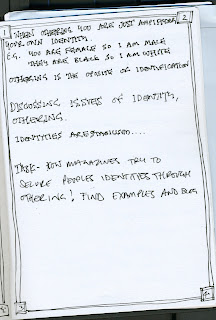 1 2
WHEN OTHERING YOU ARE JUST AMPLIFYING
YOUR OWN IDENTITY.
E.G. YOU ARE FEMALE SO I AM MALE
THEY ARE BLACK SO I AM WHITE
OTHERING IS THE OPPOSITE OF IDENTIFICATION
DISCUSSING ISSUES OF IDENTITY,
OTHERING.
IDENTITIES ARE
TASK - HOW MAGAZINES TRY TO
SECURE PEOPLES IDENTITIES THROUGH
OTHERING! FIND EXAMPLES AND BLOG